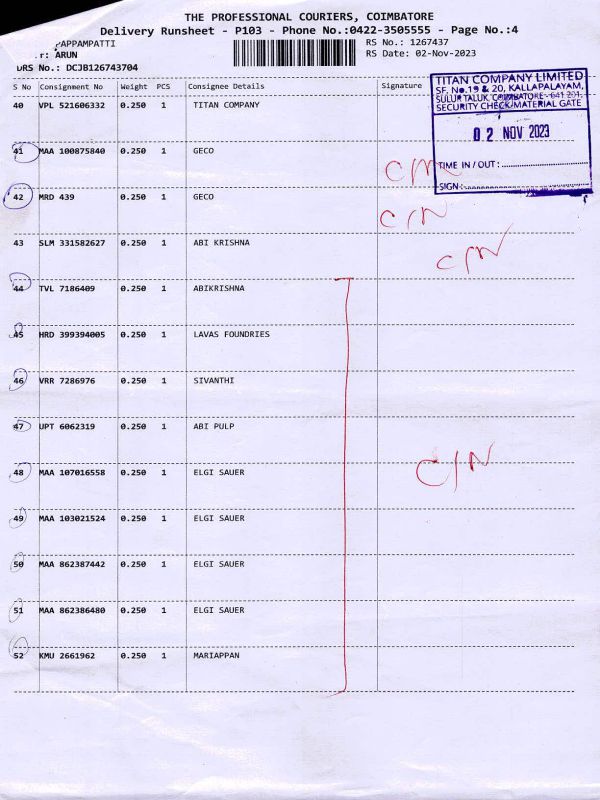 THE PROFESSIONAL COURIERS, COIMBATORE
Delivery Runsheet - P103 - Phone No.:0422-3505555 - Page No.:4
PAPPAMPATTI
r: ARUN
RS No.: 1267437
RS Date: 02-Nov-2023
DRS No.: DCJB126743704
S No Consignment No Weight PCS Consignee Details Signature
TITAN COMPANY LIMITED
SF, No.19 & 20, KALLAPALAYAM,
SULUR TALUK, COIMBATORE - 641 201.
SECURITY CHECK/MATERIAL GATE
02 NOV 2023
TIME IN / OUT :
SIGN :
40 VPL 521606332 0.250 1 TITAN COMPANY
41 MAA 100875840 0.250 1 GECO C/N
42 MRD 439 0.250 1 GECO C/N
43 SLM 331582627 0.250 1 ABI KRISHNA C/N
44 TVL 7186409 0.250 1 ABIKRISHNA
45 HRD 399394005 0.250 1 LAVAS FOUNDRIES
46 VRR 7286976 0.250 1 SIVANTHI
47 UPT 6062319 0.250 1 ABI PULP
48 MAA 107016558 0.250 1 ELGI SAUER C/N
49 MAA 103021524 0.250 1 ELGI SAUER
50 MAA 862387442 0.250 1 ELGI SAUER
51 MAA 862386480 0.250 1 ELGI SAUER
52 KMU 2661962 0.250 1 MARIAPPAN